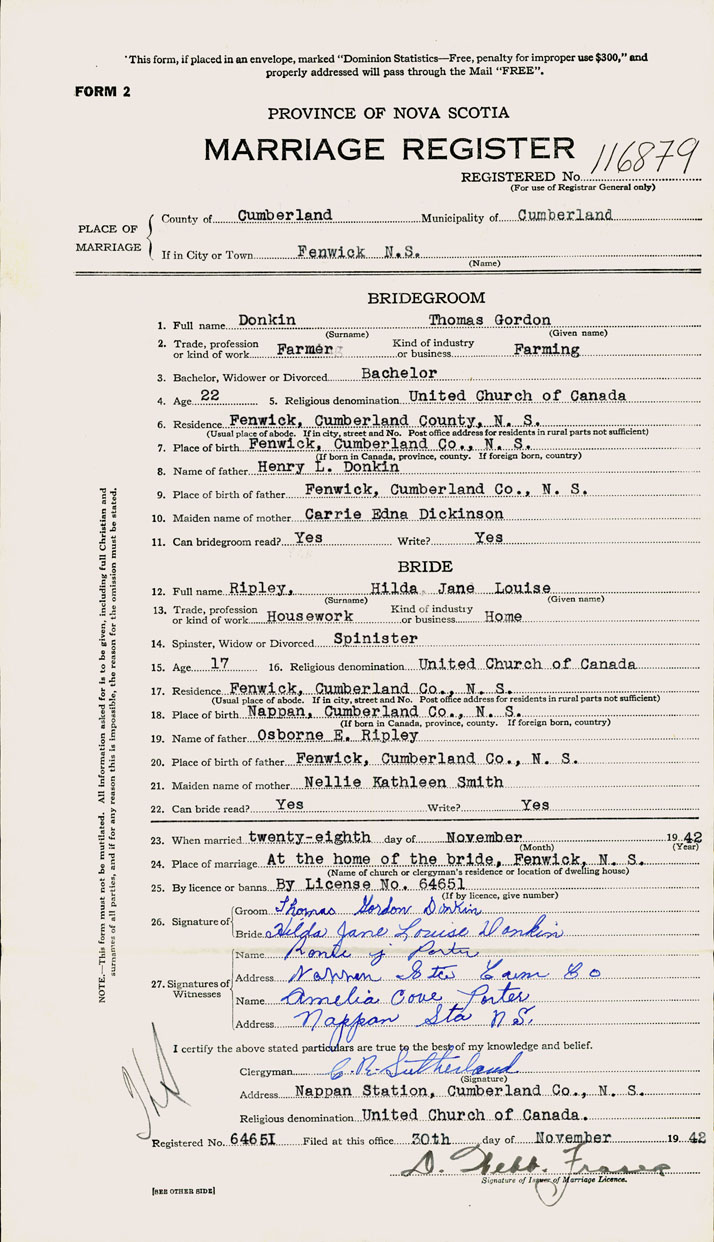 'This form, if placed in an envelope, marked "Dominion Statistics—Free, penalty for improper use $300," and
properly addressed will pass through the Mail "FREE".
FORM 2
PROVINCE OF NOVA SCOTIA
MARRIAGE REGISTER
REGISTERED No. 116879
(For use of Registrar General only)
PLACE OF MARRIAGE
County of Cumberland Municipality of Cumberland
If in City or Town Fenwick N.S.
(Name)
BRIDEGROOM
1. Full name Donkin Thomas Gordon
(Surname) (Given name)
2. Trade, profession or kind of work Farmer Kind of industry or business Farming
3. Bachelor, Widower or Divorced Bachelor
4. Age 22 5. Religious denomination United Church of Canada
6. Residence Fenwick, Cumberland County, N. S.
(Usual place of abode. If in city, street and No. Post office address for residents in rural parts not sufficient)
7. Place of birth Fenwick, Cumberland Co., N. S.
(If born in Canada, province, county. If foreign born, country)
8. Name of father Henry L. Donkin
9. Place of birth of father Fenwick, Cumberland Co., N. S.
10. Maiden name of mother Carrie Edna Dickinson
11. Can bridegroom read? Yes Write? Yes
BRIDE
12. Full name Ripley, Hilda Jane Louise
(Surname) (Given name)
13. Trade, profession or kind of work Housework Kind of industry or business Home
14. Spinster, Widow or Divorced Spinister
15. Age 17 16. Religious denomination United Church of Canada
17. Residence Fenwick, Cumberland Co., N. S.
(Usual place of abode. If in city, street and No. Post office address for residents in rural parts not sufficient)
18. Place of birth Nappan, Cumberland Co., N. S.
(If born in Canada, province, county. If foreign born, country)
19. Name of father Osborne E. Ripley
20. Place of birth of father Fenwick, Cumberland Co., N. S.
21. Maiden name of mother Nellie Kathleen Smith
22. Can bride read? Yes Write? Yes
23. When married twenty-eighth day of November 1942
(Month) (Year)
24. Place of marriage At the home of the bride, Fenwick, N. S.
(Name of church or clergyman's residence or location of dwelling house)
25. By licence or banns By License No. 64651
(If by licence, give number)
26. Signature of Groom Thomas Gordon Donkin
Bride Hilda Jane Louise Donkin
27. Signatures of Witnesses
Name Porter
Address Nappan Sta Co
Name Amelia Cove Porter
Address Nappan Sta N.S.
I certify the above stated particulars are true to the best of my knowledge and belief.
Clergyman C. R. Sutherland
(Signature)
Address Nappan Station, Cumberland Co., N. S.
Religious denomination United Church of Canada.
Registered No. 64651 Filed at this office 30th day of November 1942
D. Webb. Fraser
Signature of Issuer of Marriage Licence.
[SEE OTHER SIDE]
NOTE.—This form must not be mutilated. All information asked for is to be given, including full Christian and
surnames of all parties, and if for any reason this is impossible, the reason for the omission must be stated.